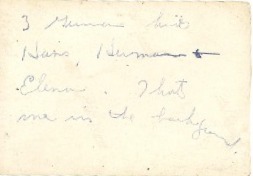 3 German kids
Hans, Herman +
Elenor. That
me in the background